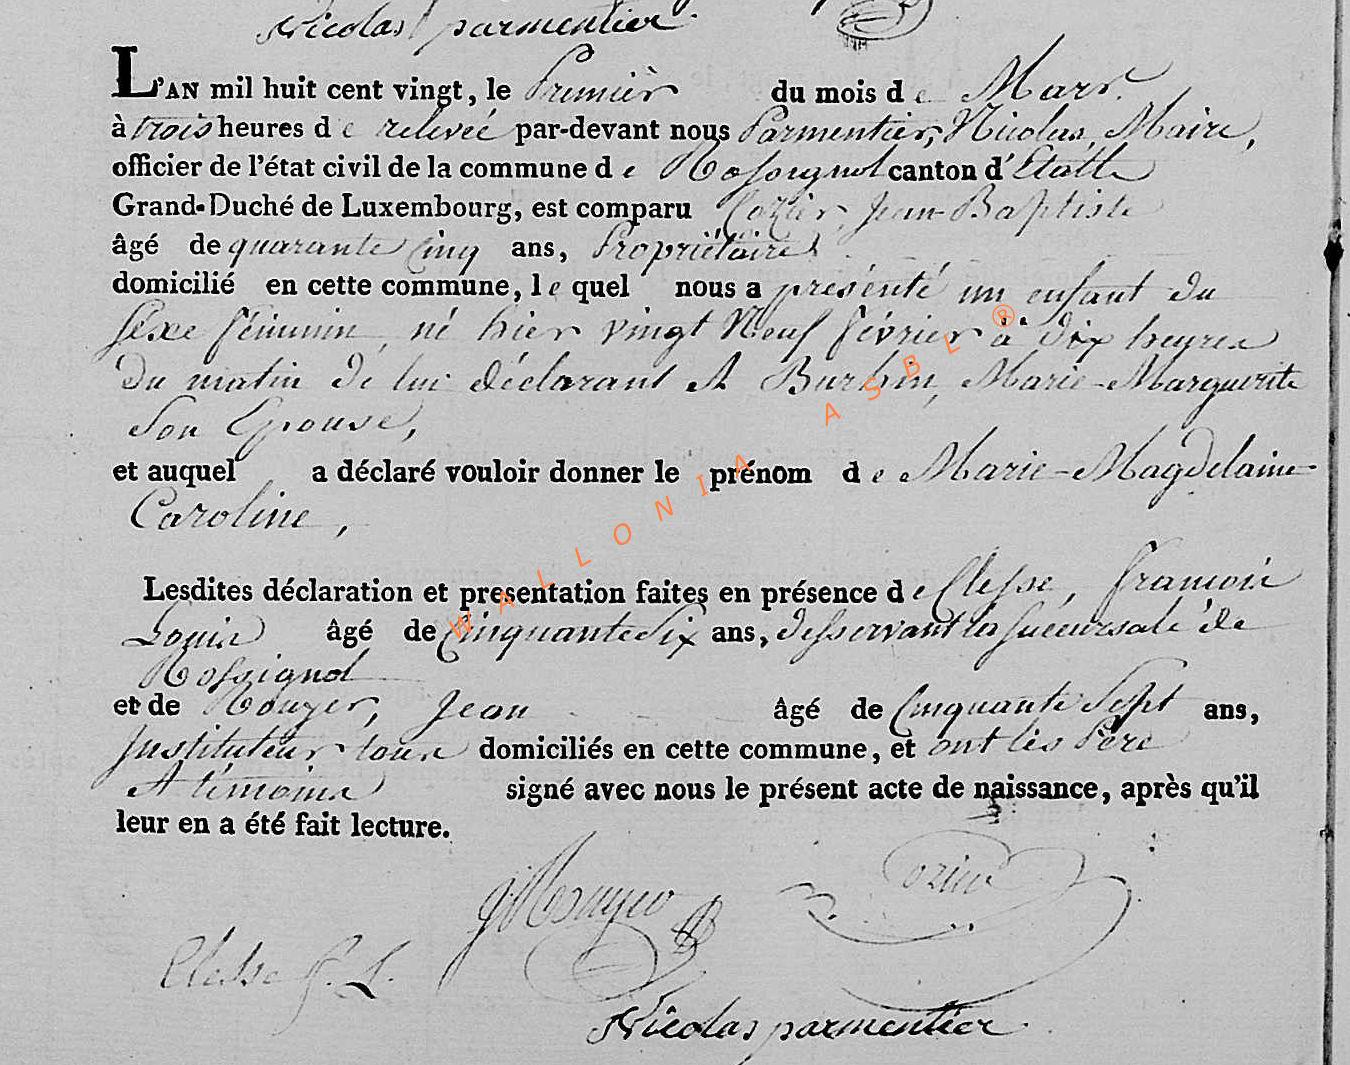 Nicolas parmentier
L'AN mil huit cent vingt, le Premier du mois de Mars
à trois heures de relevée par-devant nous Parmentier, Nicolas, Maire,
officier de l'état civil de la commune de Rossignol canton d'Etalle
Grand-Duché de Luxembourg, est comparu Cozier, Jean-Baptiste
âgé de quarante Cinq ans, Propriétaire
domicilié en cette commune, le quel nous a présenté un enfant du
sexe féminin, né hier vingt Neuf février à dix heures
du matin de lui déclarant et Burhin, Marie-Marguerite
Son Epouse,
et auquel a déclaré vouloir donner le prénom de Marie-Magdelaine-
Caroline,
Lesdites déclaration et presentation faites en présence de Clesse, francois
Louis âgé de Cinquante Six ans, desservant la succursale de
Rossignol
et de Rouyer, Jean âgé de Cinquante Sept ans,
Instituteur tous domiciliés en cette commune, et ont les Père
et témoins signé avec nous le présent acte de naissance, après qu'il
leur en a été fait lecture.
Cozier
Clesse f. L.
Nicolas parmentier
WALLONIA ASBL ®